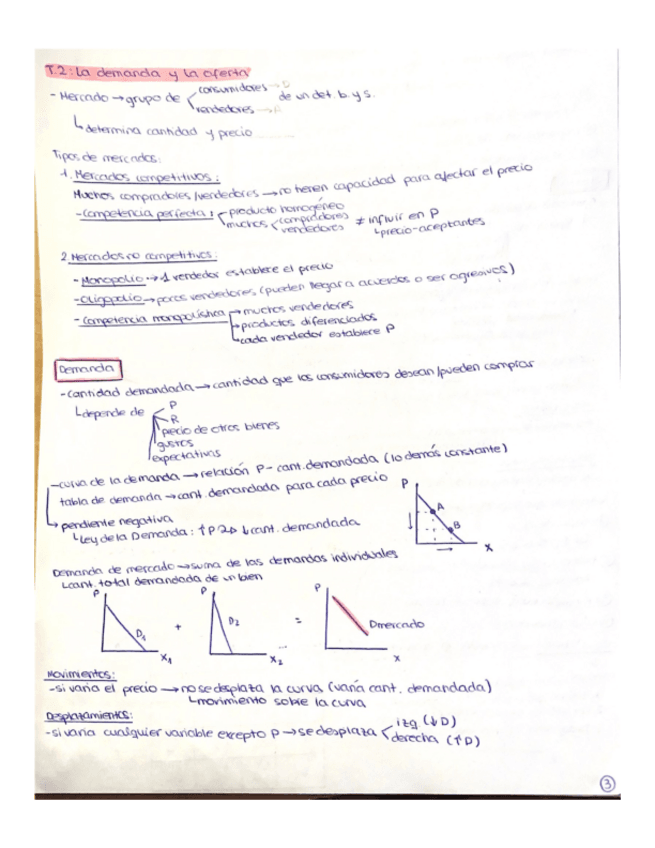 T.2: La demanda y la oferta
- Mercado → grupo de consumidores → D
vendedores → O
de un det. b. y s.
↳ determina cantidad y precio
Tipos de mercados:
1. Mercados competitivos:
Muchos compradores/vendedores → no tienen capacidad para afectar el precio
- Competencia perfecta: producto homogéneo
muchos compradores
vendedores
≠ influir en P
↳ precio-aceptantes
2. Mercados no competitivos:
- Monopolio → 1 vendedor establece el precio
- Oligopolio → pocos vendedores (pueden llegar a acuerdos o ser agresivos)
- Competencia monopolística → muchos vendedores
→ productos diferenciados
↳ cada vendedor establece P
Demanda
- Cantidad demandada → cantidad que los consumidores desean/pueden comprar
↳ depende de P
R
precio de otros bienes
gustos
expectativas
- curva de la demanda → relación P - cant. demandada (lo demás constante)
tabla de demanda → cant. demandada para cada precio
→ pendiente negativa
↳ Ley de la Demanda: ↑P ⇒ ↓cant. demandada
P
A
B
X
Demanda de mercado → suma de las demandas individuales
↳ cant. total demandada de un bien
P
D1
X1
+
P
D2
X2
=
P
Dmercado
X
Movimientos:
- si varía el precio → no se desplaza la curva (varía cant. demandada)
↳ movimiento sobre la curva
Desplazamientos:
- si varía cualquier variable excepto P → se desplaza izq (↓D)
derecha (↑D)
3